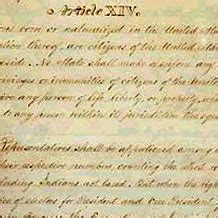 Article XIV.
ons born or naturalized in the United Stat
ction thereof, are citizens of the United Stat
reside. No State shall make or enforce any
vileges or immunities of citizens of the Unit
rive any person of life, liberty, or property, wit
to any person within its jurisdiction the equ
Representatives shall be apportioned among
their respective numbers, counting the whole n
luding Indians not taxed. But when the right
ice of electors for President and Vice President